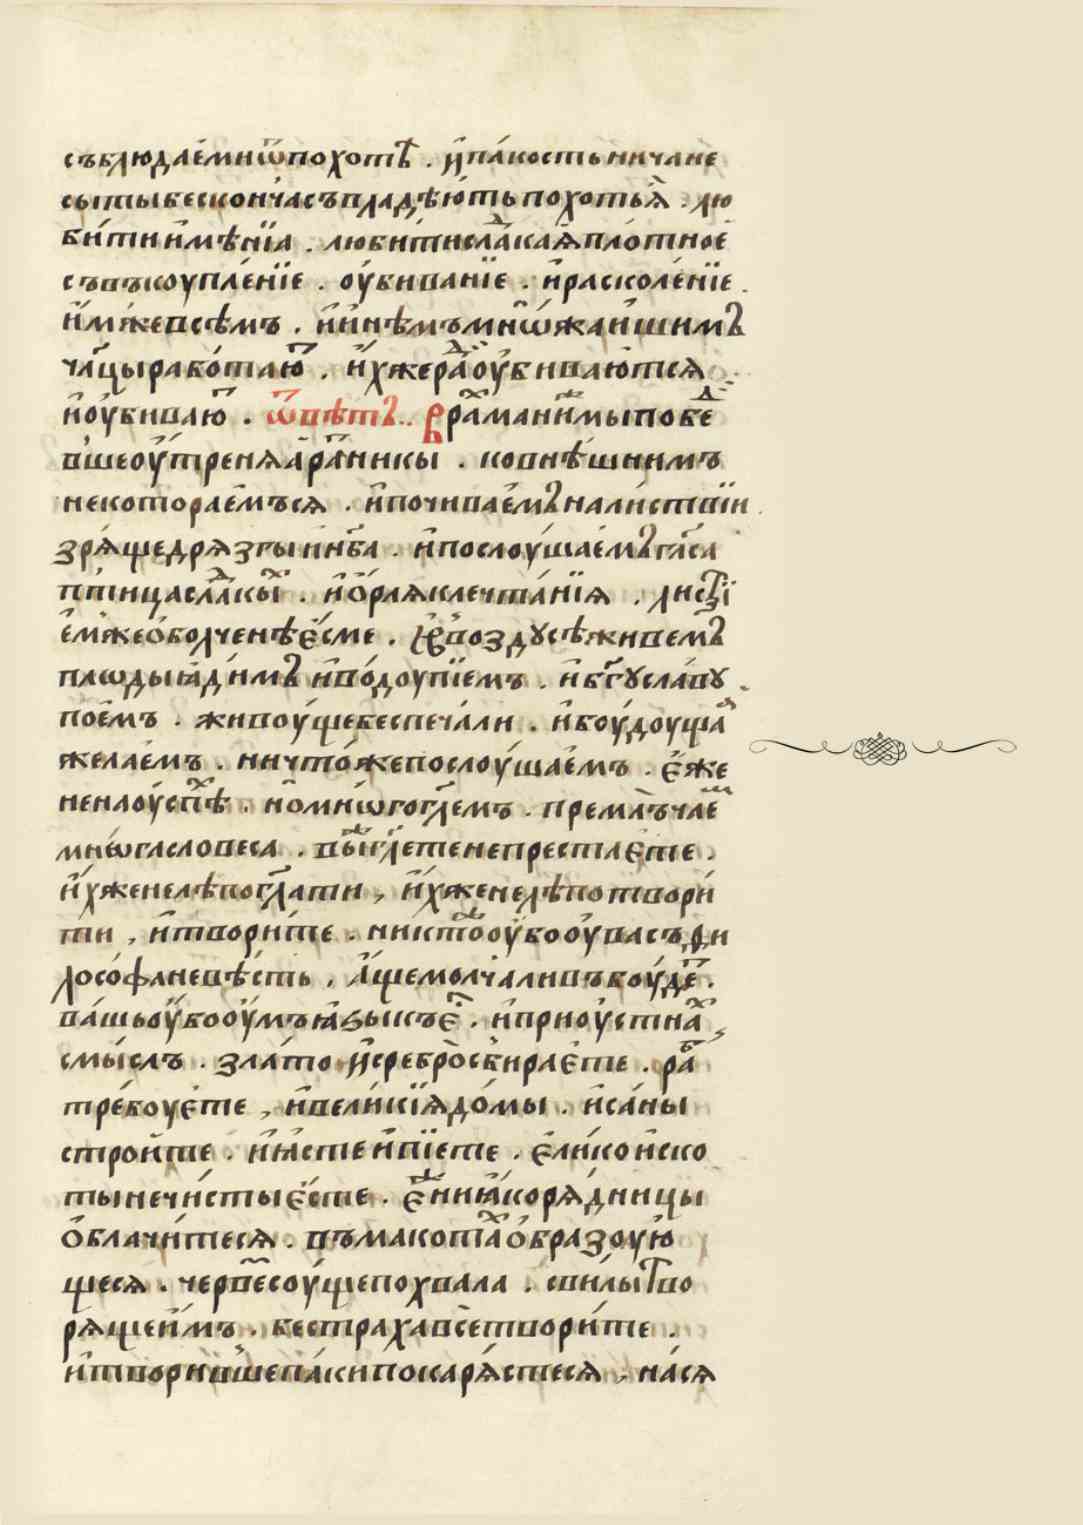 съблюдаемни ѿпохотѣ . ипакостьничане
сытыбескончасъвладѣютьпохотьѧ . лю
битиимѣнїа . любитисладкаꙗплотное
съвъкоуплѣнїе . оубиванїе . ирасколенїе .
имжевсѣмъ . иинѣмъмнѡжаишимъ
чл҃цыработаю . ихжерадиоубиваютсѧ
иоубиваю . ѿвѣтъ .. рахманимыпобе
вшеоутренѧаратникы . ковнѣшнимъ
некотораемъсѧ . ипочиваемъналиствїи
зрѧщедрѧзгыинб҃а . ипослоушаемъгл҃са
птицасладкых . иорлѧклечтанїѧ . листвї
емжеоболченѣесме . воздусѣживемъ
плѡдыꙗдимъ иводоупїемъ . иб҃гуславу
поемъ . живоущебеспечали . ибоудоущаа
желаемъ . ничтожепослоушаемъ . еже
ненаоуспѣх . номнѡгогл҃емъ . премлъчае
мнѡгасловеса . выгл҃етенепрестаете .
ихженелѣпогл҃ати , ихженелѣпотвори
ти , итворите . никтооубооувасъфи
лософаневѣсть . ащемолчаливъбоуде .
вашьоубооумъꙗзыкъе . ипривоустнах
смыслъ . злато исребросъбираете . раб
требоуете , ивеликїѧдомы . исаны
строите . иꙗстеипїете . еликоиско
тынечистыесте . еинꙗкорѧдницы
облачитесѧ . въмакотахобразоую
щесѧ . червесоущепохвала . свилытво
рѧщеимъ . бестрахавсетворите .
итворившепакипокарѧстесѧ , насѧ